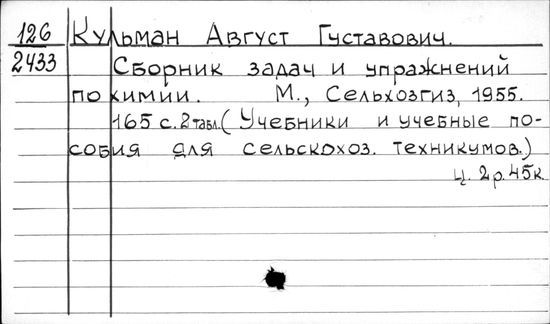 126 Кульман Август Густавович.
2433 Сборник задач и упражнений
по химии. М., Сельхозгиз, 1955.
165 с. 2 табл. (Учебники и учебные по-
собия для сельскохоз. техникумов.)
Ц. 2 р. 45 к.